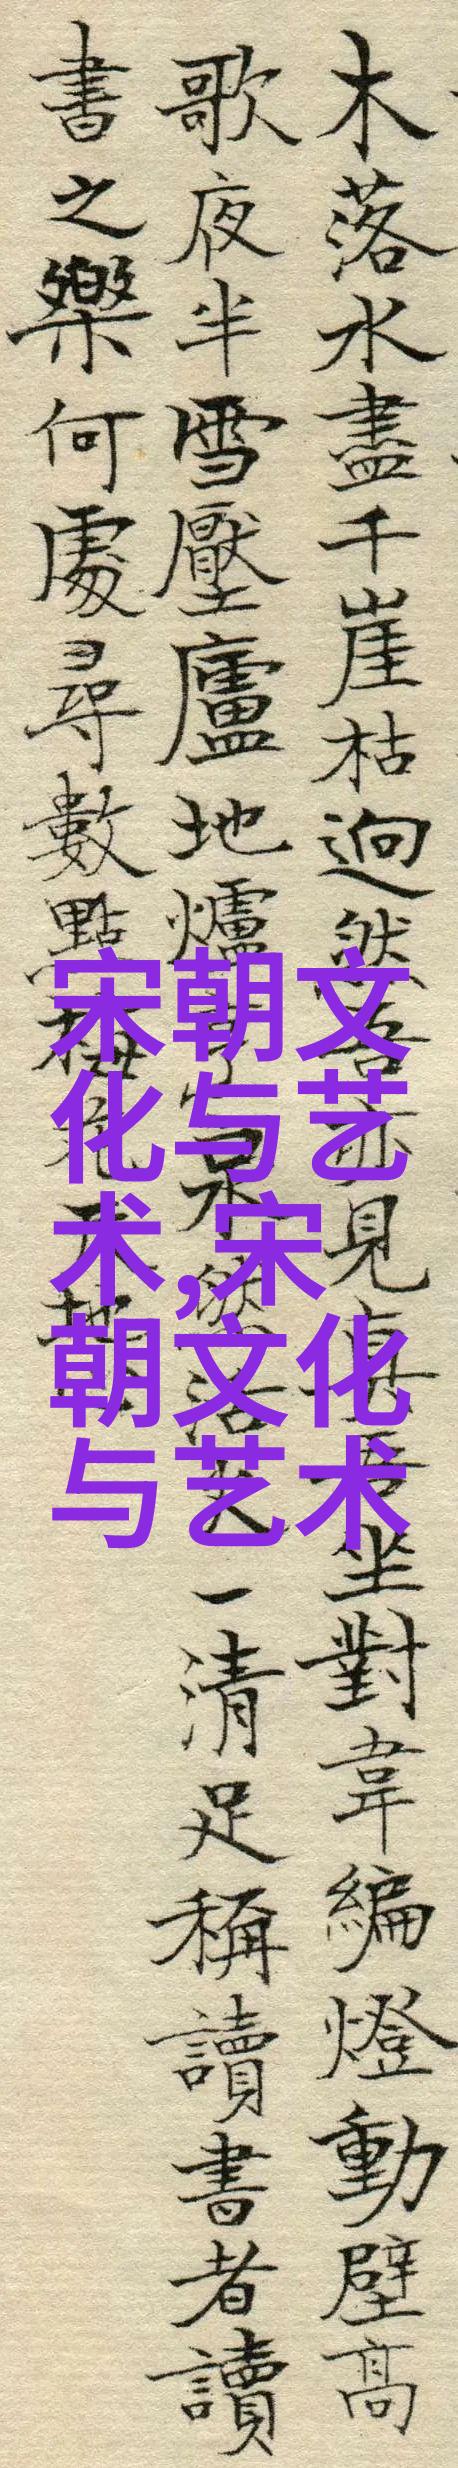 木落水盡千崖枯迥然吾亦見真吾坐對韋編燈動壁高
歌夜半雪壓廬地爐活火一清足稱讀書者讀
書之樂何處尋數點梅花天地
宋朝文
化与艺
术,宋
朝文化
与艺术